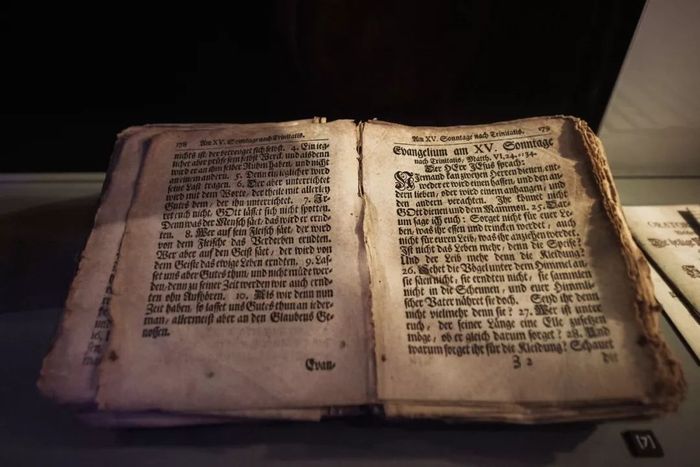 178 Am XV. Sonntage nach Trinitatis.
nichts ist, der betreuget sich selbst. 4. Ein ieg-
licher aber prüfe sein selbst Werck, und alsdenn
wird er an ihm selber Ruhm haben, und nicht
an einem andern. 5. Denn ein ieglicher wird
seine Last tragen. 6. Der aber unterrichtet
wird mit dem Worte, der theile mit allerley
Guts dem, der ihn unterrichtet. 7. Ir-
ret euch nicht, GOtt läßt sich nicht spotten.
Denn was der Mensch säet, das wird er ernd-
ten. 8. Wer auf sein Fleisch säet, der wird
von dem Fleische das Verderben erndten.
Wer aber auf den Geist säet, der wird von
dem Geiste das ewige Leben erndten. 9. Las-
set uns aber Gutes thun, und nicht müde wer-
den, denn zu seiner Zeit werden wir auch ernd-
ten ohn Aufhören. 10. Als wir denn nun
Zeit haben, so lasset uns Gutes thun an ieder-
man, allermeist aber an den Glaubens Ge-
nossen.
Evan-
Am XV. Sonntage nach Trinitatis. 179
Evangelium am XV. Sonntage
nach Trinitatis, Matth. VI, 24.-34.
Der HErr JEsus sprach:
Niemand kan zweyen Herren dienen, ent-
weder er wird einen hassen, und den an-
dern lieben, oder wird einem anhangen, und
den andern verachten. Ihr könnet nicht
GOtt dienen und dem Mammon. 25. Dar-
um sage ich euch: Sorget nicht für euer Le-
ben, was ihr essen und trincken werdet, auch
nicht für euren Leib, was ihr anziehen werdet.
Ist nicht das Leben mehr, denn die Speise?
Und der Leib mehr denn die Kleidung?
26. Sehet die Vögel unter dem Himmel an,
sie säen nicht, sie erndten nicht, sie sammlen
nicht in die Scheunen, und euer Himmli-
scher Vater nähret sie doch. Seyd ihr denn
nicht vielmehr denn sie? 27. Wer ist unter
euch, der seiner Länge eine Elle zusetzen
möge, ob er gleich darum sorget? 28. Und
warum sorget ihr für die Kleidung? Schauet
3 2 die